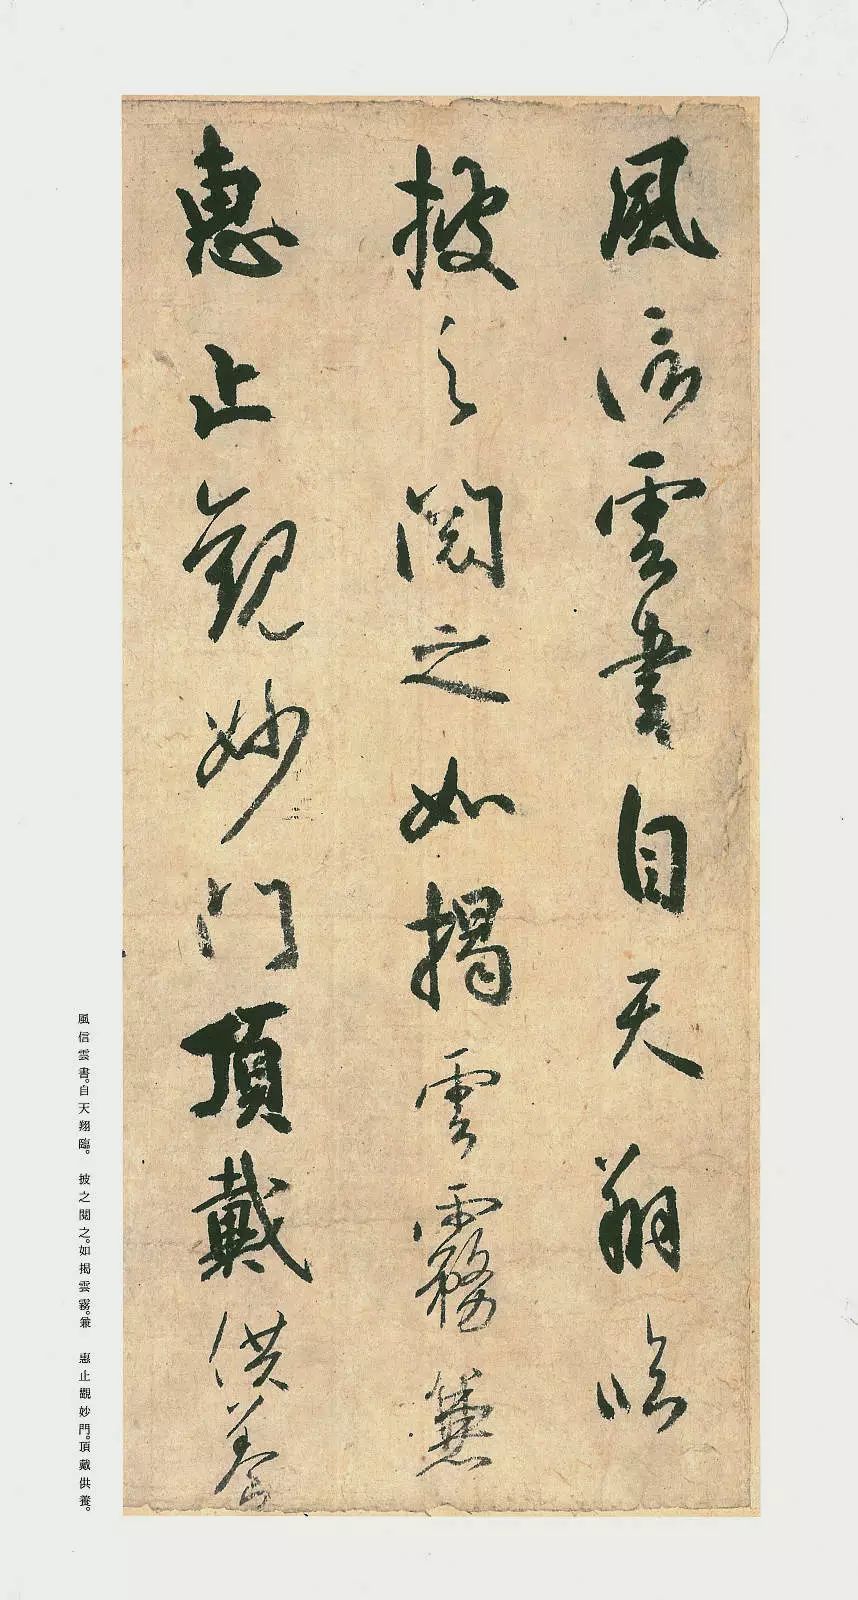 風信雲書自天翔臨
披之閱之如揭雲霧兼
惠止觀妙門頂戴供養
風信雲書。自天翔臨。　披之閱之。如揭雲霧。兼　惠止觀妙門。頂戴供養。